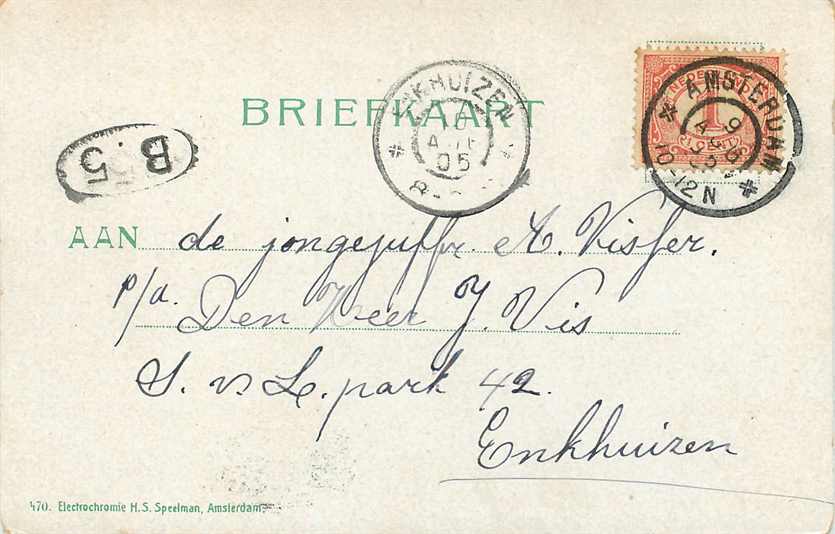 BRIEFKAART
ENKHUIZEN
05
NEDERL
1 CENT
AMSTERDAM
9
10-12N
B.55
AAN de jongejuffr. A. Visser.
p/a. Den Heer J. Vis
S. v. L. park 42.
Enkhuizen
470. Electrochromie H.S. Speelman, Amsterdam.